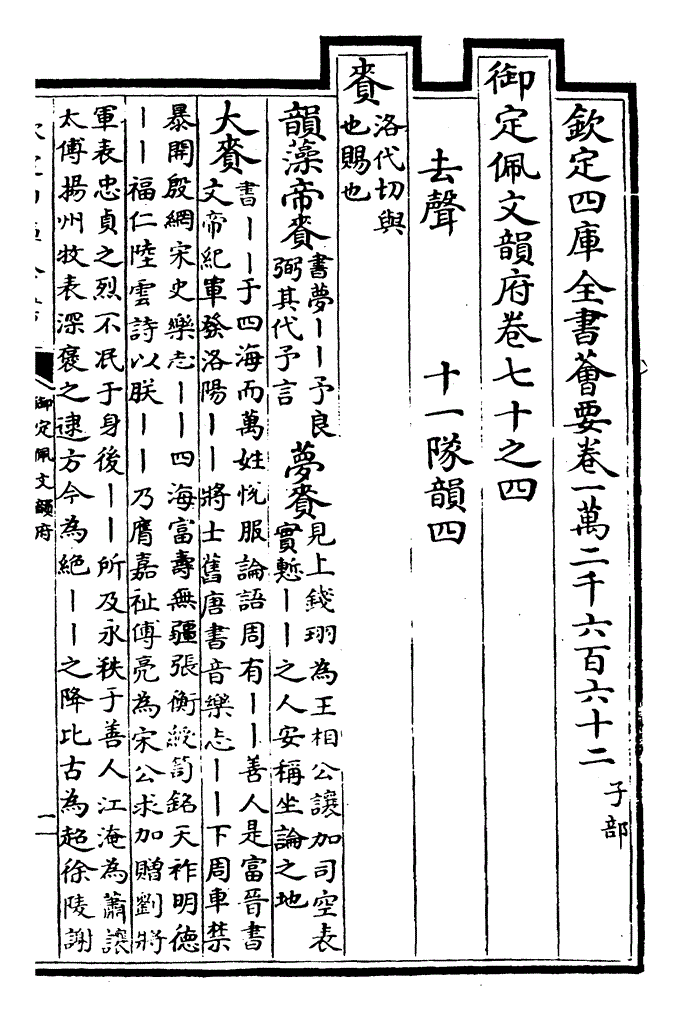 欽定四庫全書薈要卷一萬二千六百六十二 子部
御定佩文韻府卷七十之四
去聲 十一隊韻四
賚 洛代切與
也賜也
韻藻帝賚 書夢丨丨予良
弼其代予言
夢賚 見上錢珝為王相公讓加司空表
實慙丨丨之人安稱坐論之地
大賚 書丨丨于四海而萬姓悅服論語周有丨丨善人是富晉書
文帝紀軍發洛陽丨丨將士舊唐書音樂志丨丨下周車禁
暴開殷網宋史樂志丨丨四海富壽無疆張衡綬笥銘天祚明德
丨丨福仁陸雲詩以朕丨丨乃膺嘉祉傅亮為宋公求加贈劉將
軍表忠貞之烈不泯于身後丨丨所及永秩于善人江淹為蕭讓
太傅揚州牧表深褒之逮方今為絕丨丨之降比古為超徐陵謝
御定佩文韻府
一